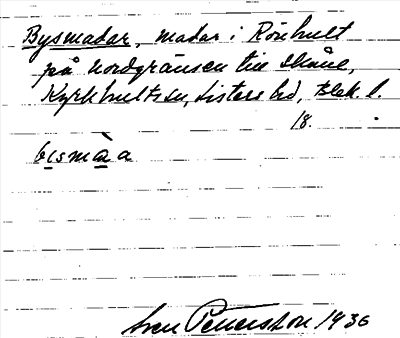 Bysmadar, madar i Rönhult
på nordgränsen till Skåne,
Kyrkhults sn, Listers hd, Blek. l.
18.
bismàa
Sven Petersson 1936